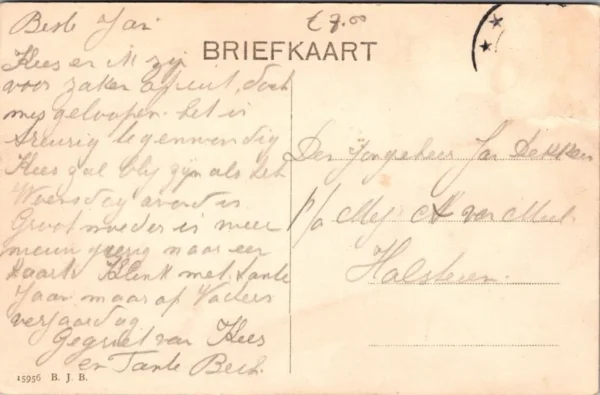 € 7.00
BRIEFKAART
Beste Jan
Kees en ik zijn
voor zaken op uit, doch
misgeloopen. Het is
treurig tegenwoordig
Kees zal blij zijn als het
Woensdag avond is
Grootmoeder is meer
nieuwsgierig naar een
kaart. Klink met tante
Jaan maar op Vaders
verjaardag
Gegroet van Kees
en Tante Beth.
Den Jongeheer Jan Dekker
p/a Mej.
Halsteren.
15956 B. J. B.